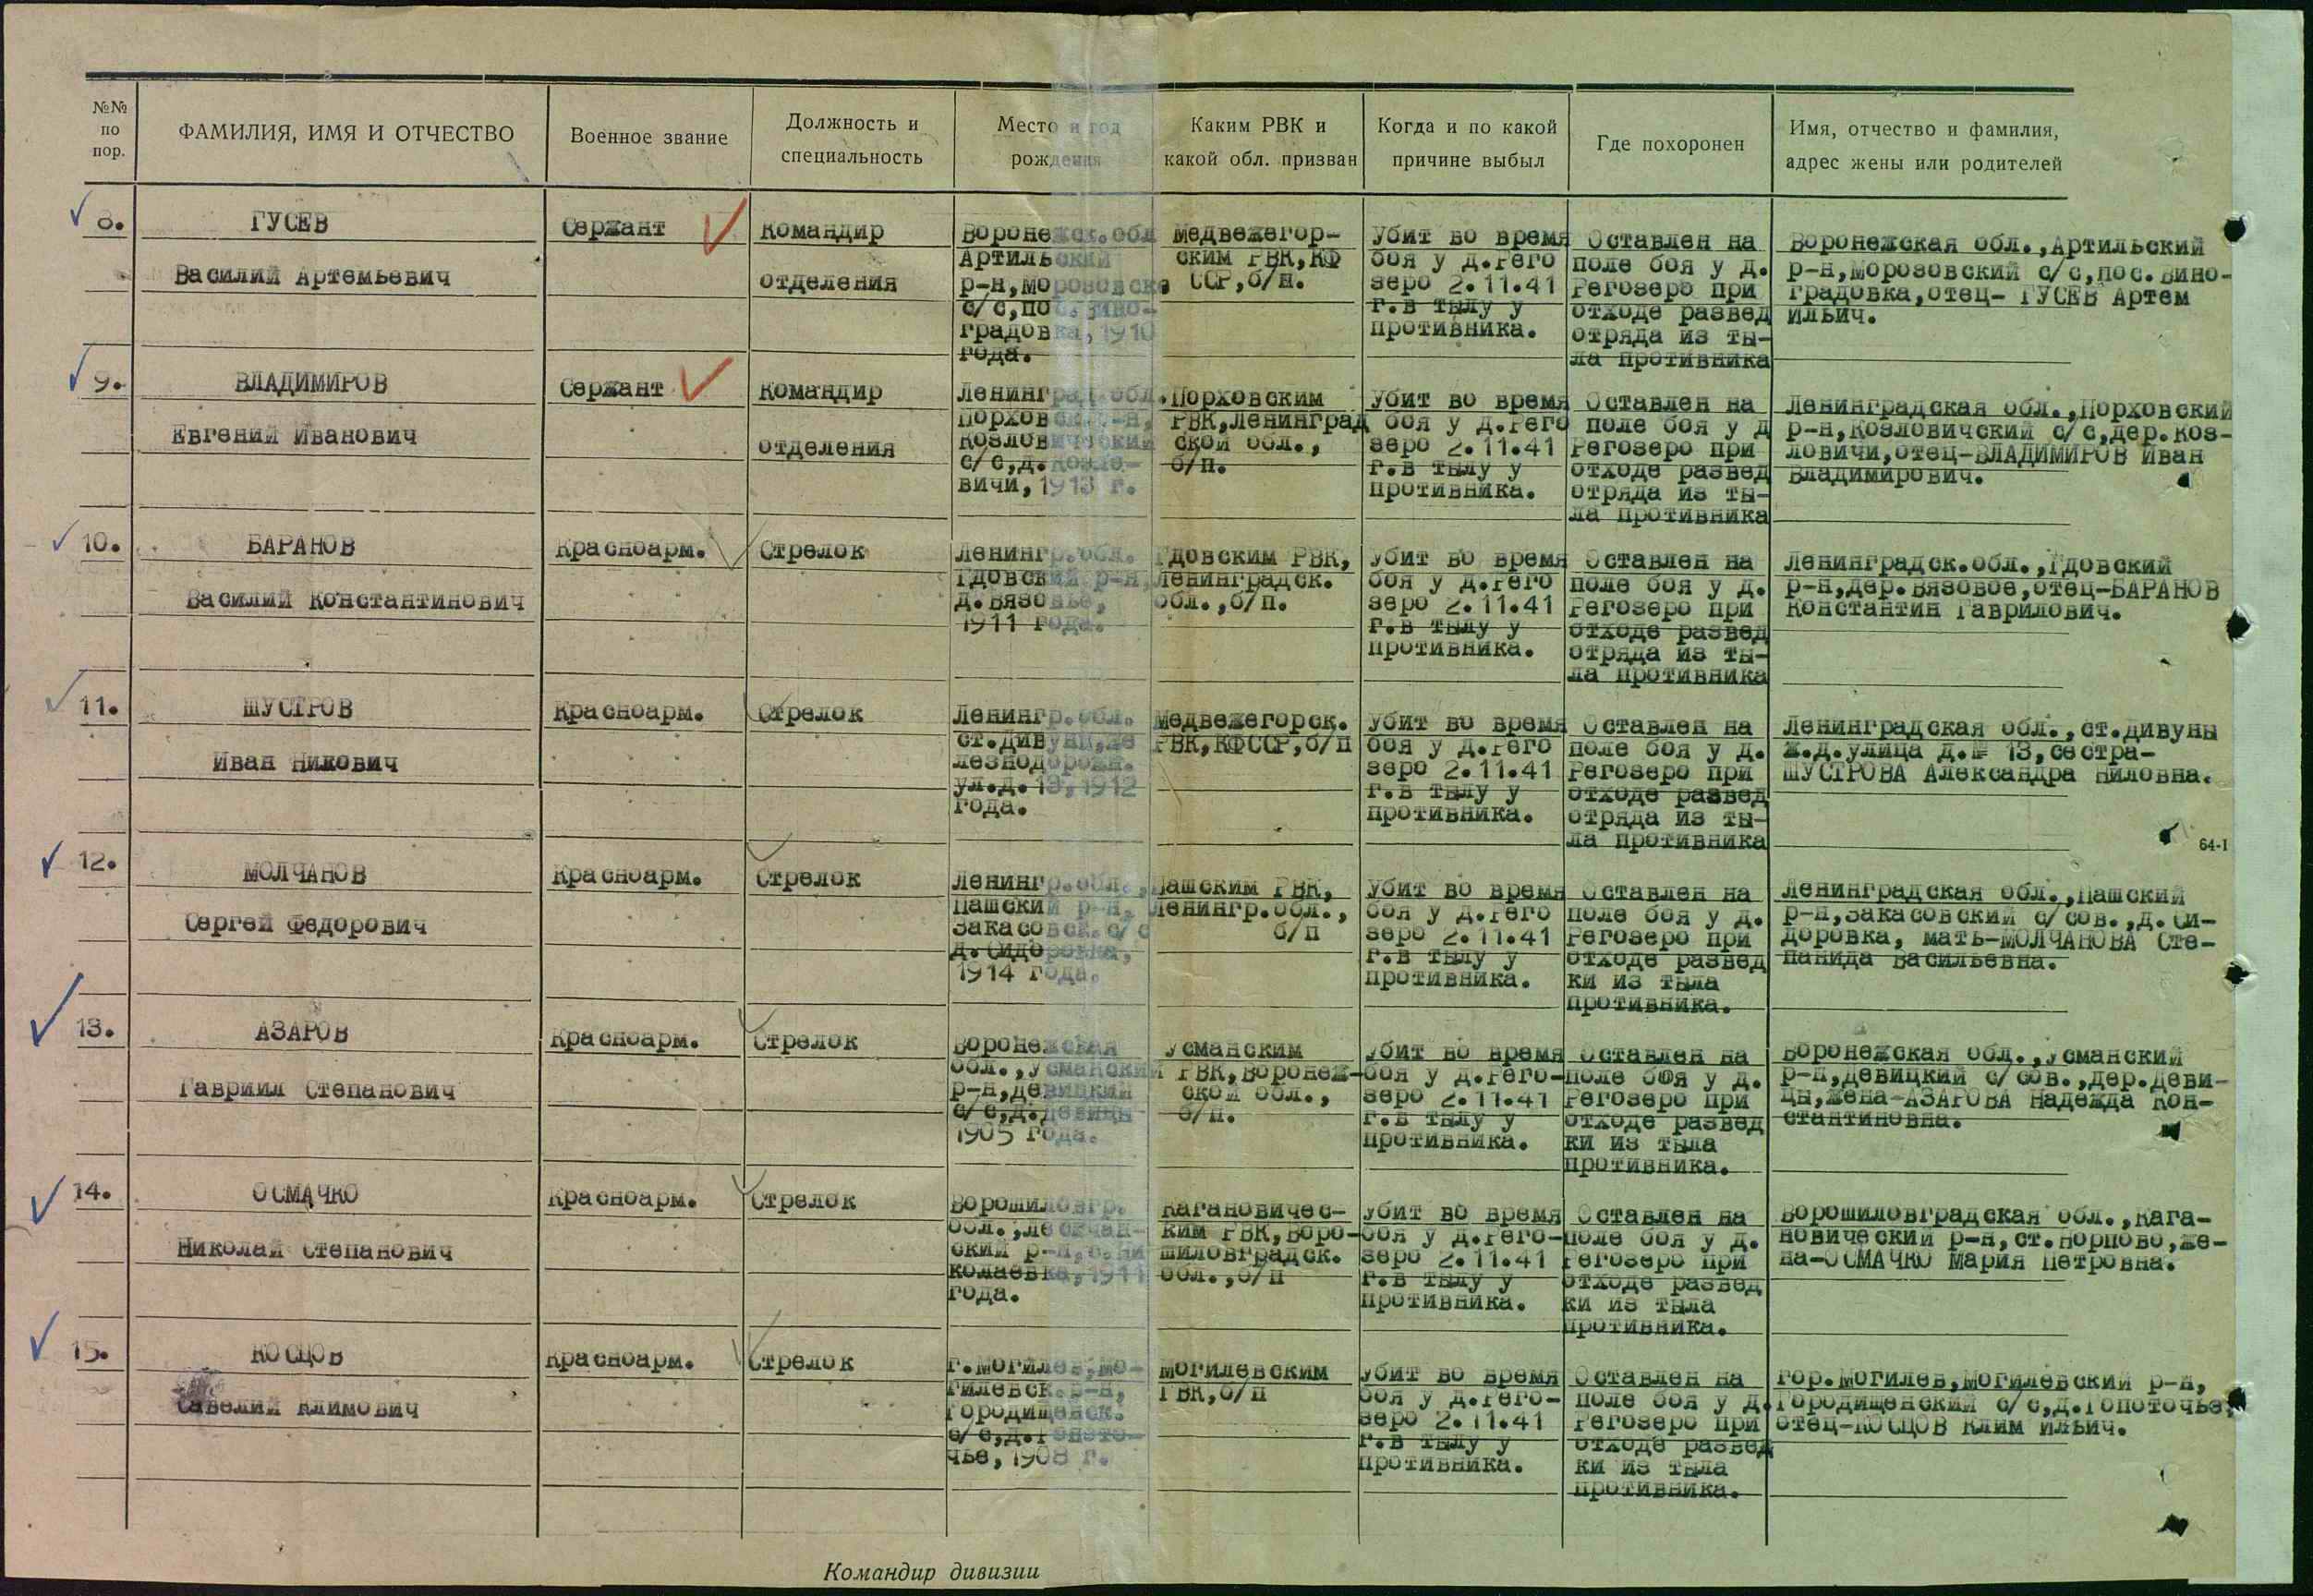 №№ по пор.
ФАМИЛИЯ, ИМЯ И ОТЧЕСТВО
Военное звание
Должность и специальность
Место и год рождения
Каким РВК и какой обл. призван
Когда и по какой причине выбыл
Где похоронен
Имя, отчество и фамилия, адрес жены или родителей
8.
ГУСЕВ
Василий Артемьевич
Сержант
Командир
отделения
Воронежск.обл
Артильский
р-н,Морозовск
с/с,пос.Вино-
градовка,1910
года.
Медвежегор-
ским РВК,КФ
ССР,б/п.
Убит во время
боя у д.Рего
зеро 2.11.41
г.в тылу у
противника.
Оставлен на
поле боя у д.
Регозеро при
отходе развед
отряда из ты-
ла противника
Воронежская обл.,Артильский
р-н,Морозовский с/с,пос.Вино-
градовка,отец- ГУСЕВ Артем
Ильич.
9.
ВЛАДИМИРОВ
Евгений Иванович
Сержант
Командир
отделения
Ленинград.обл.
Порховск.р-н,
Козловичский
с/с,д.Козло-
вичи,1913 г.
Порховским
РВК,Ленинград
ской обл.,
б/п.
Убит во время
боя у д.Рего
зеро 2.11.41
г.в тылу у
противника.
Оставлен на
поле боя у д
Регозеро при
отходе развед
отряда из ты-
ла противника
Ленинградская обл.,Порховский
р-н,Козловичский с/с,дер.Коз-
ловичи,отец-ВЛАДИМИРОВ Иван
Владимирович.
10.
БАРАНОВ
Василий Константинович
Красноарм.
Стрелок
Ленингр.обл.
Гдовский р-н,
д.Вязовье,
1911 года.
Гдовским РВК,
Ленинградск.
обл.,б/п.
Убит во время
боя у д.Рего
зеро 2.11.41
г.в тылу у
противника.
Оставлен на
поле боя у д.
Регозеро при
отходе развед
отряда из ты-
ла противника
Ленинградск.обл.,Гдовский
р-н,дер.Вязовое,отец-БАРАНОВ
Константин Гаврилович.
11.
ШУСТРОВ
Иван Нилович
Красноарм.
Стрелок
Ленингр.обл.
ст.Дивуни,же
лезнодорожн.
ул.д.13,1912
года.
Медвежегорск.
РВК,КФССР,б/п
Убит во время
боя у д.Рего
зеро 2.11.41
г.в тылу у
противника.
Оставлен на
поле боя у д.
Регозеро при
отходе развед
отряда из ты-
ла противника
Ленинградская обл.,ст.Дивуны
Ж.д.улица д.№ 13,сестра-
ШУСТРОВА Александра Ниловна.
64-1
12.
МОЛЧАНОВ
Сергей Федорович
Красноарм.
Стрелок
Ленингр.обл.,
Пашский р-н,
Закасовск.с/с
д.Сидоровка,
1914 года.
Пашским РВК,
Ленингр.обл.,
б/п
Убит во время
боя у д.Рего
зеро 2.11.41
г.в тылу у
противника.
Оставлен на
поле боя у д.
Регозеро при
отходе развед
ки из тыла
противника.
Ленинградская обл.,Пашский
р-н,Закасовский с/сов.,д.Си-
доровка, мать-МОЛЧАНОВА Сте-
панида Васильевна.
13.
АЗАРОВ
Гавриил Степанович
Красноарм.
Стрелок
Воронежская
обл.,Усманский
р-н,Девицкий
с/с,д.Девицы
1905 года.
Усманским
РВК,Воронеж-
ской обл.,
б/п.
Убит во время
боя у д.Рего-
зеро 2.11.41
г.в тылу у
противника.
Оставлен на
поле боя у д.
Регозеро при
отходе развед
ки из тыла
противника.
Воронежская обл.,Усманский
р-н,Девицкий с/сов.,дер.Деви-
цы,жена-АЗАРОВА Надежда Кон-
стантиновна.
14.
ОСМАЧКО
Николай Степанович
Красноарм.
Стрелок
Ворошиловгр.
обл.,Лесчан-
ский р-н,с.Ни
колаевка,1911
года.
Кагановичес-
ким РВК,Воро-
шиловградск.
обл.,б/п
Убит во время
боя у д.Рего-
зеро 2.11.41
г.в тылу у
противника.
Оставлен на
поле боя у д.
Регозеро при
отходе развед
ки из тыла
противника.
Ворошиловградская обл.,Кага-
новический р-н,ст.Борново,же-
на-ОСМАЧКО Мария Петровна.
15.
КОСЦОВ
Савелий Климович
Красноарм.
Стрелок
г.Могилев,Мо-
гилевск.р-н,
Городищенск.
с/с,д.Гопото-
чье,1908 г.
Могилевским
РВК,б/п
Убит во время
боя у д.Рего-
зеро 2.11.41
г.в тылу у
противника.
Оставлен на
поле боя у д.
Регозеро при
отходе развед
ки из тыла
противника.
Гор.Могилев,Могилевский р-н,
Городищенский с/с,д.Гопоточье,
отец-КОСЦОВ Клим Ильич.
Командир дивизии